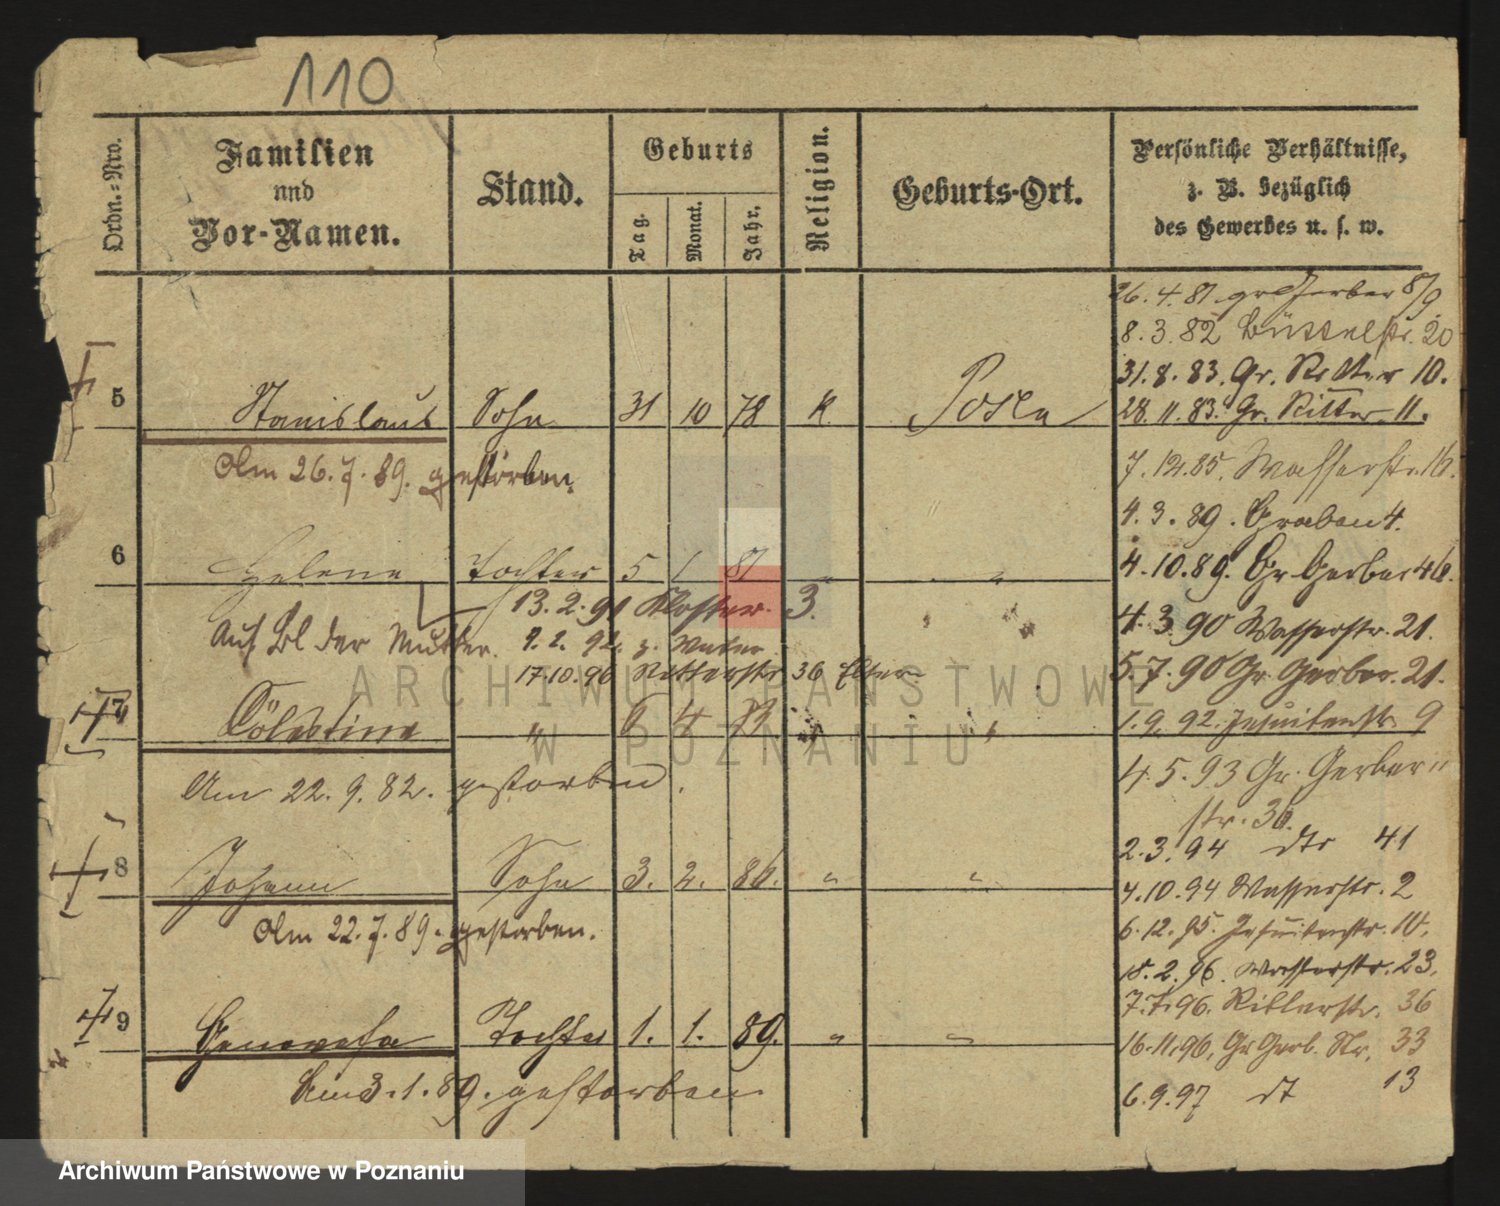 110
Ordn.-Nro.
Familien
und
Vor-Namen.
Stand.
Geburts
Tag.
Monat.
Jahr.
Religion.
Geburts-Ort.
Persönliche Verhältnisse,
z. B. bezüglich
des Gewerbes u. s. w.
26. 4. 81. gr Gerber 8/9
8. 3. 82 Büttelstr. 20
31. 8. 83. Gr. Ritter 10.
5 Stanislaus Sohn 31 10 78 K. Posen
28. 11. 83. Gr. Ritter 11.
Am 26. 7. 89. gestorben.
7. 12. 85. Wasserstr. 16.
4. 3. 89. Graben 4.
6 Helene Tochter 5 1 81 " "
4. 10. 89. Gr Gerber 46.
13. 2. 91 Kloster. 3.
4. 3. 90 Wasserstr. 21.
Auf Bl der Mutter.
17. 10. 96 Ritterstr 36 Eltern
5. 7. 90 Gr. Gerber. 21.
7 Cölestine " 6 4 " "
1. 9. 92. Jesuitenstr. 9
Am 22. 9. 82. gestorben.
4. 5. 93 Gr. Gerber
str. 36.
2. 3. 94 dto 41
8 Johann Sohn 3. 2. 86. " "
4. 10. 94 Wasserstr. 2
Am 22. 7. 89. gestorben.
6. 12. 95. Jesuitenstr. 10.
18. 2. 96. Wasserstr. 23.
7. 7. 96. Ritterstr. 36
9 Genovefa Tochter 1. 1. 89. " "
16. 11. 96. Gr Gerb. Str. 33
Am 3. 1. 89. gestorben
6. 9. 97 dt 13
ARCHIWUM PAŃSTWOWE
W POZNANIU
Archiwum Państwowe w Poznaniu